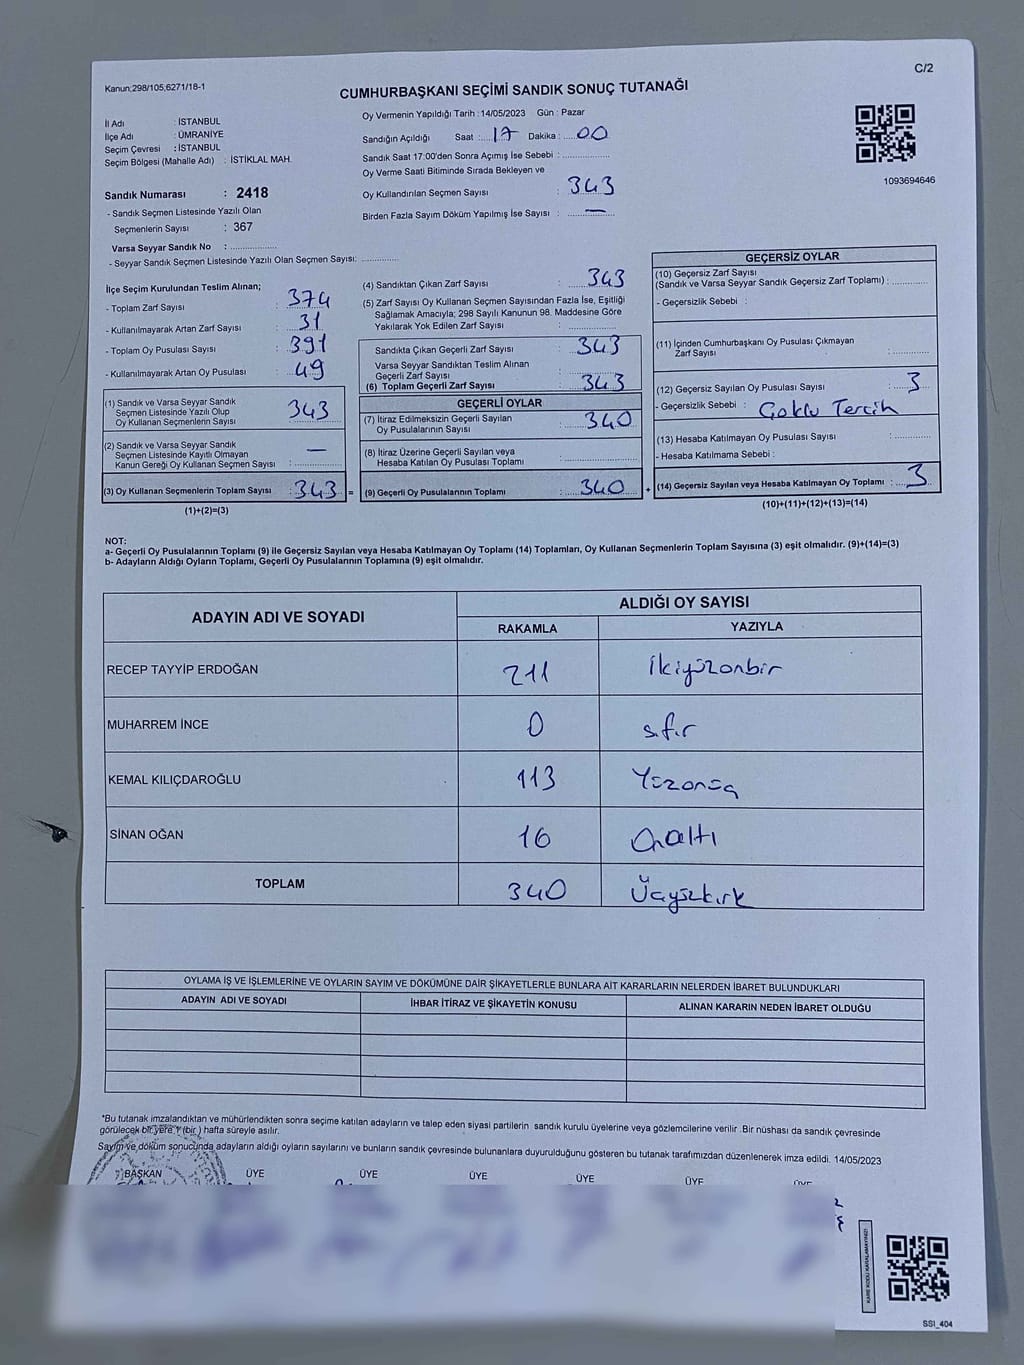 Kanun;298/105,6271/18-1
C/2
CUMHURBAŞKANI SEÇİMİ SANDIK SONUÇ TUTANAĞI
İl Adı : İSTANBUL
İlçe Adı : ÜMRANİYE
Seçim Çevresi : İSTANBUL
Seçim Bölgesi (Mahalle Adı) : İSTİKLAL MAH.
Sandık Numarası : 2418
- Sandık Seçmen Listesinde Yazılı Olan
Seçmenlerin Sayısı : 367
Varsa Seyyar Sandık No : ..................
- Seyyar Sandık Seçmen Listesinde Yazılı Olan Seçmen Sayısı: ..............
Oy Vermenin Yapıldığı Tarih : 14/05/2023 Gün : Pazar
Sandığın Açıldığı Saat :.... 17 Dakika :.... 00
Sandık Saat 17:00'den Sonra Açımış İse Sebebi : ..................
Oy Verme Saati Bitiminde Sırada Bekleyen ve
Oy Kullandırılan Seçmen Sayısı : 343
Birden Fazla Sayım Döküm Yapılmış İse Sayısı : —
1093694646
İlçe Seçim Kurulundan Teslim Alınan;
- Toplam Zarf Sayısı : 374
- Kullanılmayarak Artan Zarf Sayısı : 31
- Toplam Oy Pusulası Sayısı : 391
- Kullanılmayarak Artan Oy Pusulası : 49
(1) Sandık ve Varsa Seyyar Sandık
Seçmen Listesinde Yazılı Olup
Oy Kullanan Seçmenlerin Sayısı : 343
(2) Sandık ve Varsa Seyyar Sandık
Seçmen Listesinde Kayıtlı Olmayan
Kanun Gereği Oy Kullanan Seçmen Sayısı : —
(3) Oy Kullanan Seçmenlerin Toplam Sayısı : 343 =
(1)+(2)=(3)
(4) Sandıktan Çıkan Zarf Sayısı : 343
(5) Zarf Sayısı Oy Kullanan Seçmen Sayısından Fazla İse, Eşitliği
Sağlamak Amacıyla; 298 Sayılı Kanunun 98. Maddesine Göre
Yakılarak Yok Edilen Zarf Sayısı : ..............
Sandıkta Çıkan Geçerli Zarf Sayısı : 343
Varsa Seyyar Sandıktan Teslim Alınan
Geçerli Zarf Sayısı :
(6) Toplam Geçerli Zarf Sayısı : 343
GEÇERLİ OYLAR
(7) İtiraz Edilmeksizin Geçerli Sayılan
Oy Pusulalarının Sayısı : 340
(8) İtiraz Üzerine Geçerli Sayılan veya
Hesaba Katılan Oy Pusulası Toplamı : ..................
(9) Geçerli Oy Pusulalarının Toplamı : 340 +
GEÇERSİZ OYLAR
(10) Geçersiz Zarf Sayısı
(Sandık ve Varsa Seyyar Sandık Geçersiz Zarf Toplamı) : ..............
- Geçersizlik Sebebi :
(11) İçinden Cumhurbaşkanı Oy Pusulası Çıkmayan
Zarf Sayısı : ..............
(12) Geçersiz Sayılan Oy Pusulası Sayısı : 3
- Geçersizlik Sebebi : Çoklu Tercih
(13) Hesaba Katılmayan Oy Pusulası Sayısı : ..............
- Hesaba Katılmama Sebebi :
(14) Geçersiz Sayılan veya Hesaba Katılmayan Oy Toplamı : 3
(10)+(11)+(12)+(13)=(14)
NOT:
a- Geçerli Oy Pusulalarının Toplamı (9) ile Geçersiz Sayılan veya Hesaba Katılmayan Oy Toplamı (14) Toplamları, Oy Kullanan Seçmenlerin Toplam Sayısına (3) eşit olmalıdır. (9)+(14)=(3)
b- Adayların Aldığı Oyların Toplamı, Geçerli Oy Pusulalarının Toplamına (9) eşit olmalıdır.
ADAYIN ADI VE SOYADI ALDIĞI OY SAYISI
RAKAMLA YAZIYLA
RECEP TAYYİP ERDOĞAN 211 İkiyüzonbir
MUHARREM İNCE 0 sıfır
KEMAL KILIÇDAROĞLU 113 Yüzonüç
SİNAN OĞAN 16 Onaltı
TOPLAM 340 Üçyüzkırk
OYLAMA İŞ VE İŞLEMLERİNE VE OYLARIN SAYIM VE DÖKÜMÜNE DAİR ŞİKAYETLERLE BUNLARA AİT KARARLARIN NELERDEN İBARET BULUNDUKLARI
ADAYIN ADI VE SOYADI İHBAR İTİRAZ VE ŞİKAYETİN KONUSU ALINAN KARARIN NEDEN İBARET OLDUĞU
*Bu tutanak imzalandıktan ve mühürlendikten sonra seçime katılan adayların ve talep eden siyasi partilerin sandık kurulu üyelerine veya gözlemcilerine verilir .Bir nüshası da sandık çevresinde
görülecek bir yere 1 (bir) hafta süreyle asılır.
Sayım ve döküm sonucunda adayların aldığı oyların sayılarını ve bunların sandık çevresinde bulunanlara duyurulduğunu gösteren bu tutanak tarafımızdan düzenlenerek imza edildi. 14/05/2023
BAŞKAN ÜYE ÜYE ÜYE ÜYE ÜYE ÜYE
KARE KODU KARALAMAYINIZ!
SSI_404